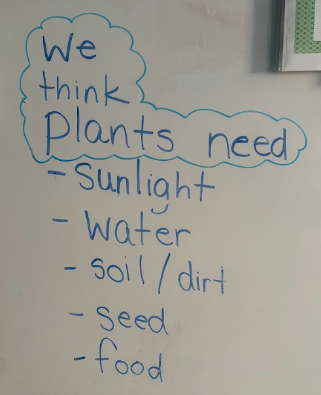 We
think
plants need
- Sunlight
- Water
- soil/dirt
- seed
- food